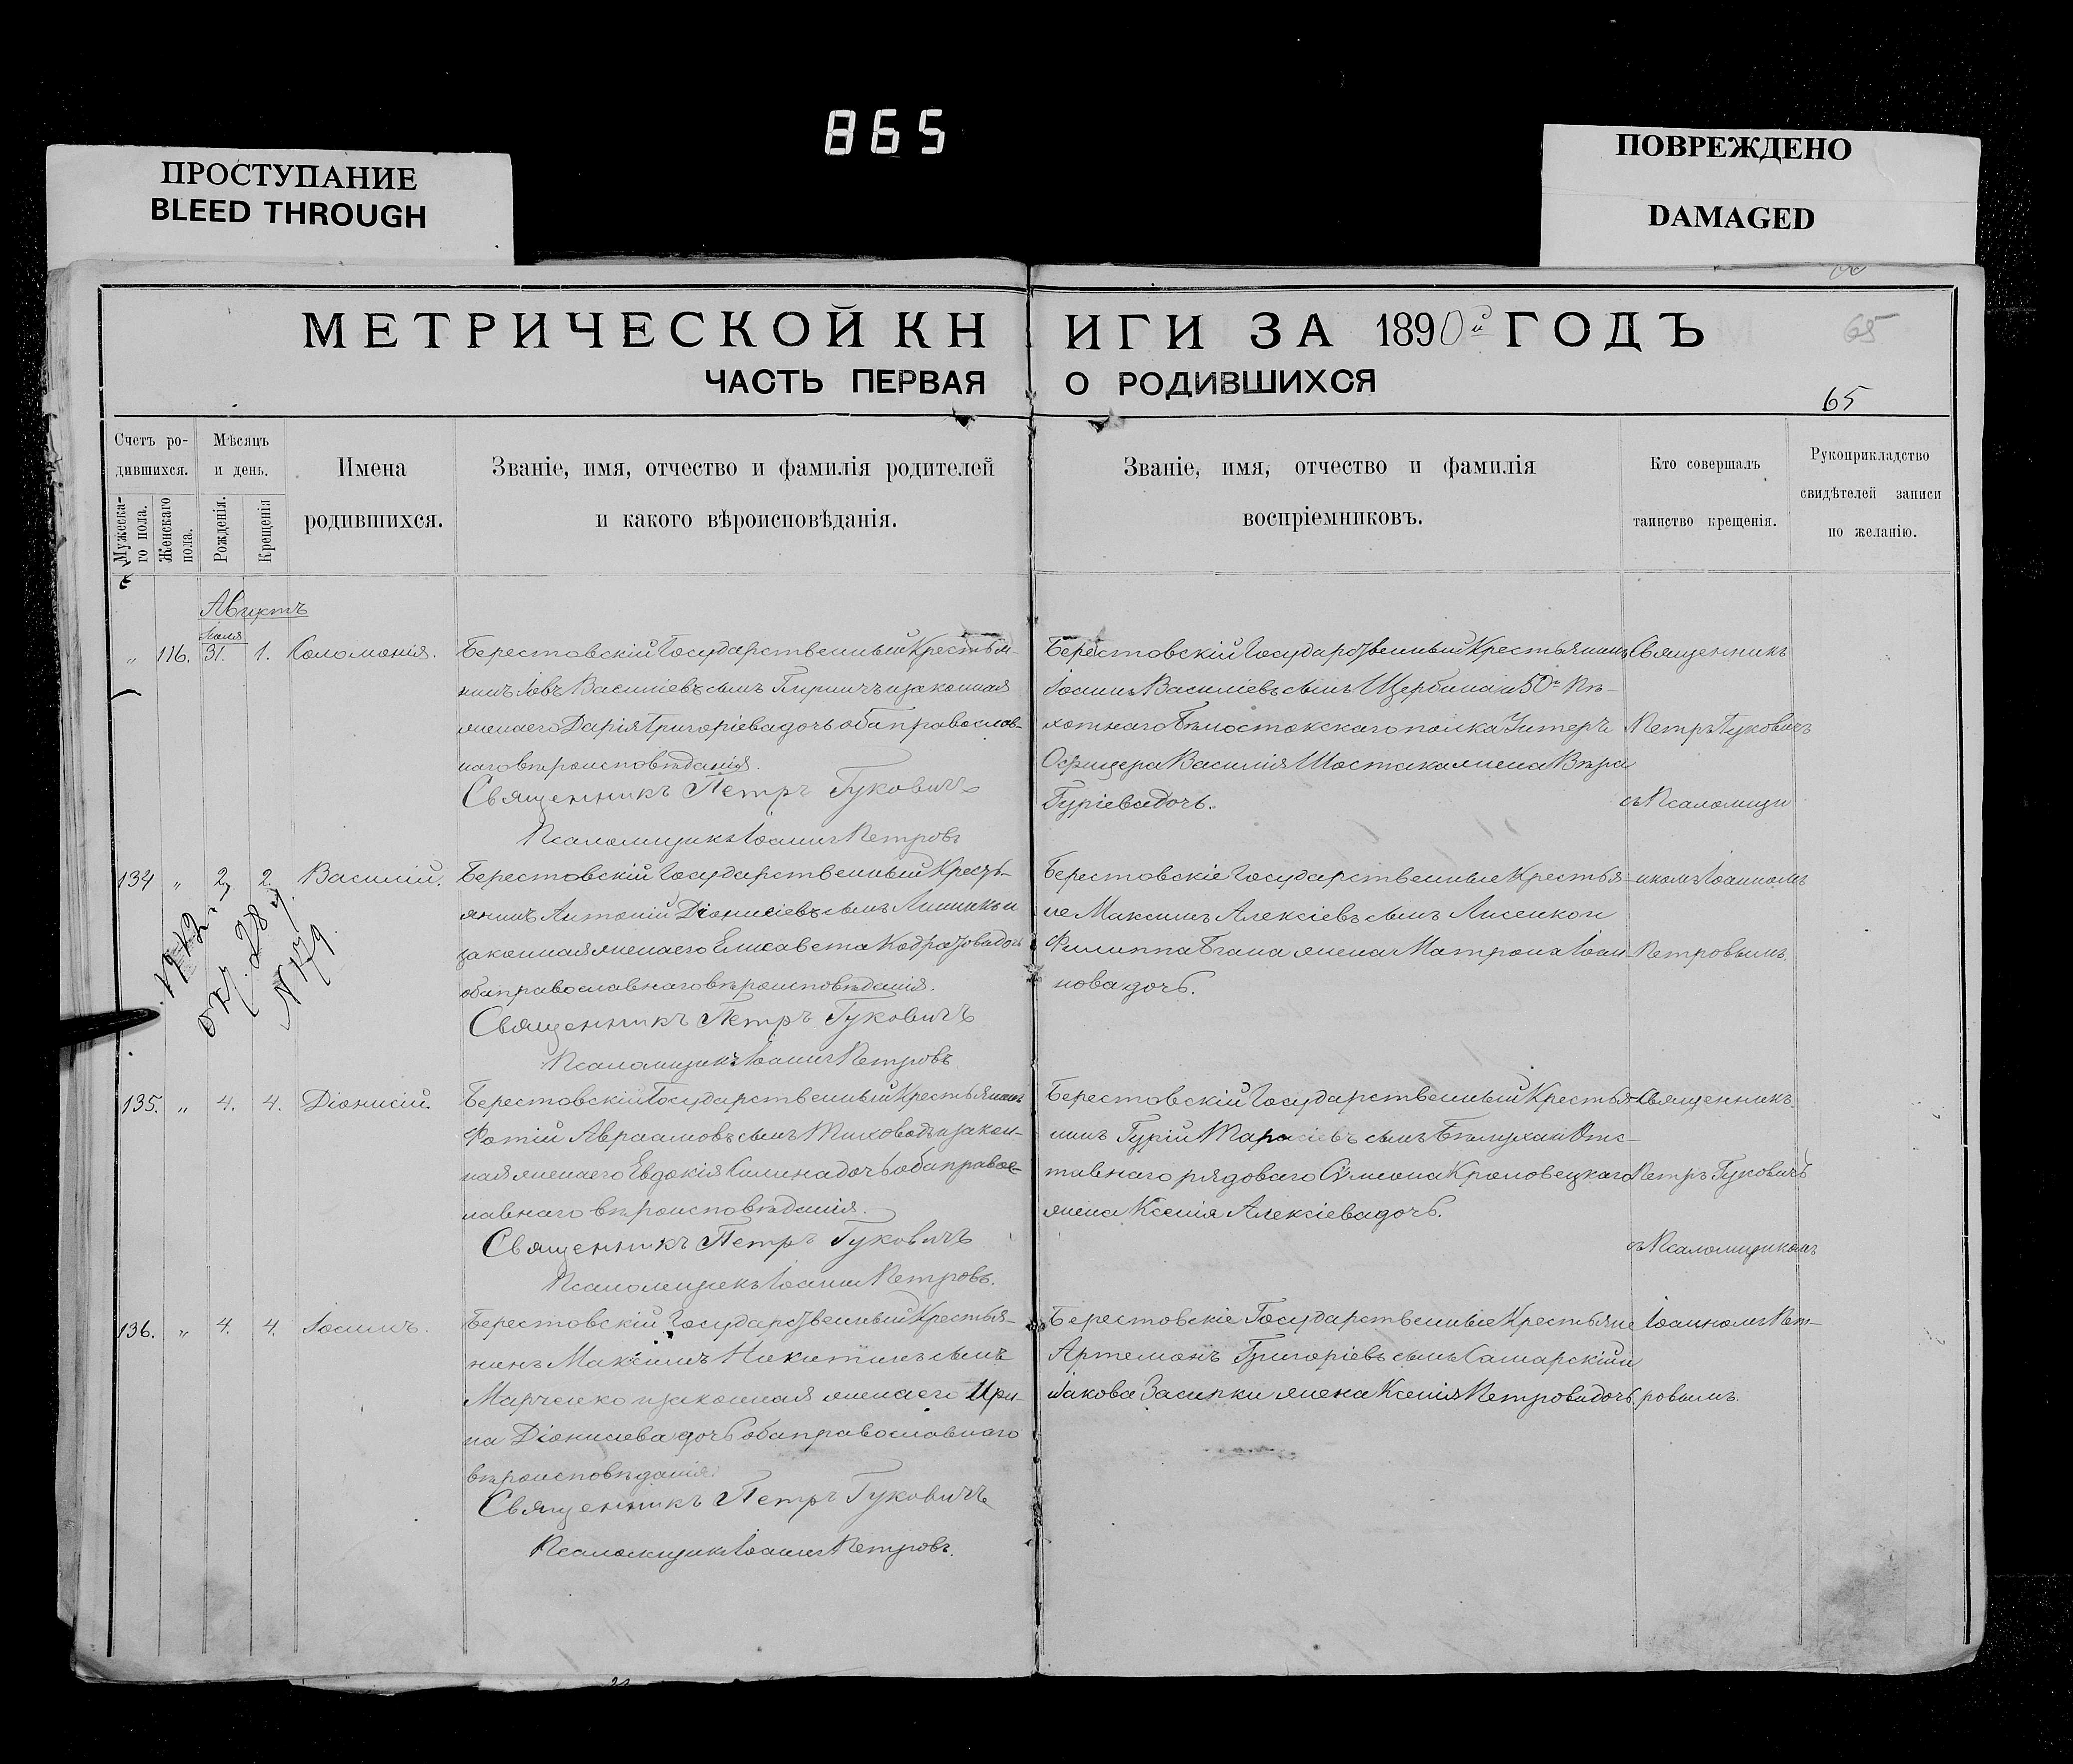 865
ПРОСТУПАНИЕ
BLEED THROUGH
ПОВРЕЖДЕНО
DAMAGED
МЕТРИЧЕСКОЙ КНИГИ ЗА 1890й ГОДЪ
65
ЧАСТЬ ПЕРВАЯ О РОДИВШИХСЯ
65
Счетъ ро-
дившихся.
Мужеска-
го пола.
Женскаго
пола.
Мѣсяцъ
и день.
Рожденія.
Крещенія
Имена
родившихся.
Званіе, имя, отчество и фамилія родителей
и какого вѣроисповѣданія.
Званіе, имя, отчество и фамилія
воспріемниковъ.
Кто совершалъ
таинство крещенія.
Рукоприкладство
свидѣтелей записи
по желанію.
Августъ
Іюля
„ 116. 31. 1. Соломонія.
Берестовскій Государственный Крестья-
нинъ Іовъ Василіевъ сынъ и законная
жена его Дарія Григоріева дочь оба православ-
наго вѣроисповѣданія.
Священникъ Петръ Гуковичъ
Псаломщикъ Іоаннъ Петровъ
Берестовскій Государственный Крестьянинъ
Іоаннъ Василіевъ сынъ Щербина и 50го Пѣ-
хотнаго Бѣлостокскаго полка Унтеръ
Офицера Василія Шостака жена Вѣра
Гуріева дочь.
Священникъ
Петръ Гуковичъ
съ Псаломщи
134 „ 2. 2. Василій.
№ 179
Берестовскій Государственный Кресть-
янинъ Антоній Діонисіевъ сынъ и
законная жена его Елисавета дочь
оба православнаго вѣроисповѣданія.
Священникъ Петръ Гуковичъ
Псаломщикъ Іоаннъ Петровъ
Берестовскіе Государственные Крестья-
не Максимъ Алексіевъ сынъ Лисенко и
Филиппа жена Матрона Іоан-
нова дочь.
комъ Іоанномъ
Петровымъ.
135. „ 4. 4. Діонисій.
Берестовскій Государственный Крестьянинъ
Фотій Авраамовъ сынъ и закон-
ная жена его Евдокія дочь оба правос-
лавнаго вѣроисповѣданія.
Священникъ Петръ Гуковичъ
Псаломщикъ Іоаннъ Петровъ.
Берестовскій Государственный Крестья-
нинъ Гурій Тарасіевъ сынъ и Отс-
тавнаго рядоваго Сѵмеона Кроловецкаго
жена Ксенія Алексіева дочь.
Священникъ
Петръ Гуковичъ
съ Псаломщикомъ
136. „ 4. 4. Іоаннъ.
Берестовскій Государственный Крестья-
нинъ Максимъ Никитинъ сынъ
Марченко и законная жена его Ири-
на Діонисіева дочь оба православнаго
вѣроисповѣданія.
Священникъ Петръ Гуковичъ
Псаломщикъ Іоаннъ Петровъ.
Берестовскіе Государственные Крестьяне
Артемонъ Григоріевъ сынъ Самарскій и
Іакова Засипки жена Ксенія Петрова дочь.
Іоанномъ Пет-
ровымъ.